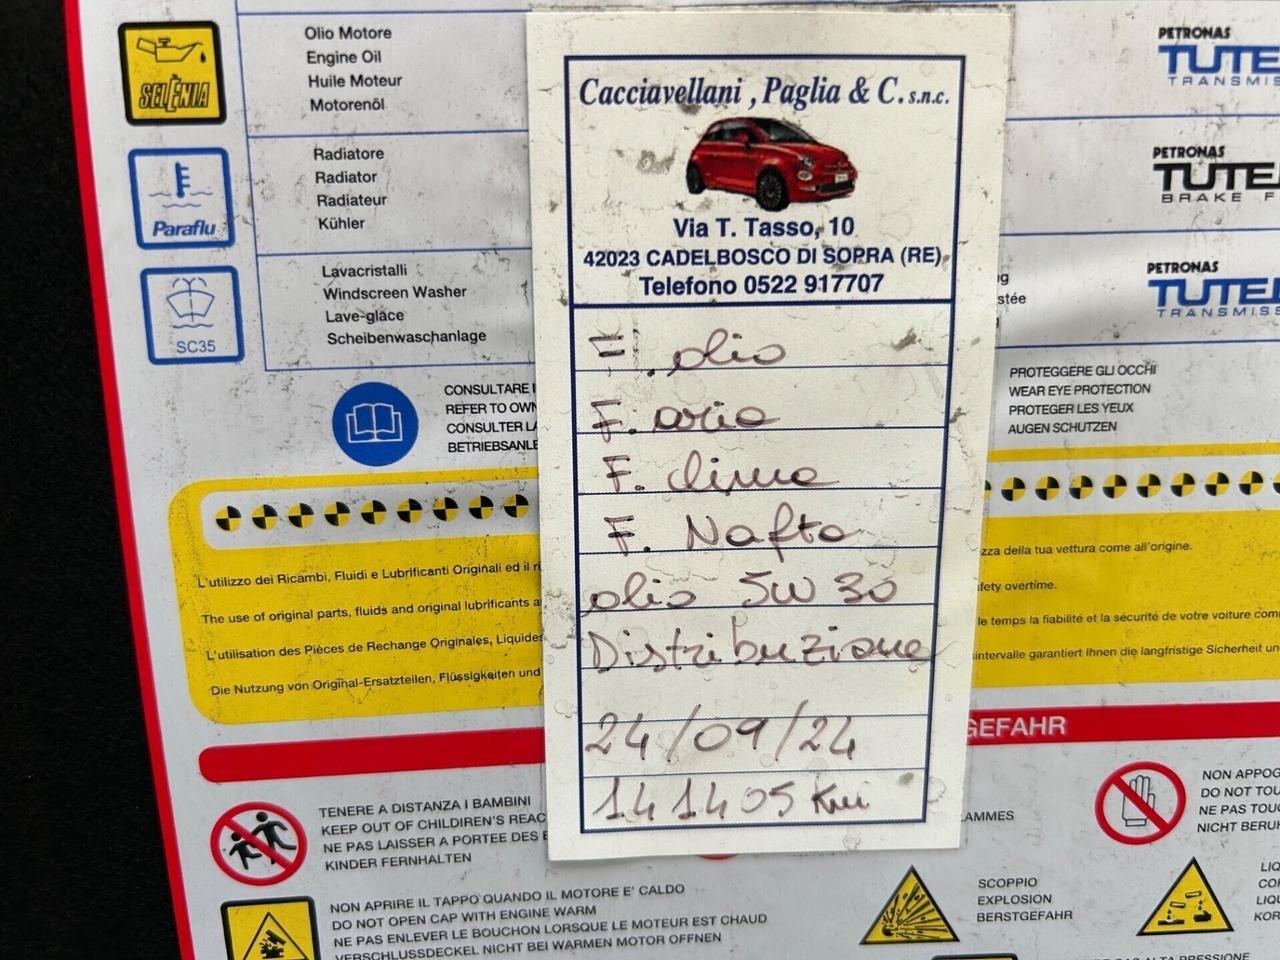 SELÈNIA
Olio Motore
Engine Oil
Huile Moteur
Motorenöl
Paraflu
Radiatore
Radiator
Radiateur
Kühler
SC35
Lavacristalli
Windscreen Washer
Lave-glace
Scheibenwaschanlage
CONSULTARE
REFER TO
CONSULTER
Cacciavellani , Paglia & C. s.n.c.
Via T. Tasso, 10
42023 CADELBOSCO DI SOPRA (RE)
Telefono 0522 917707
F. olio
F. aria
F. clima
F. Nafta
olio 5W 30
Distribuzione
24/09/24
141405 Km
PETRONAS
PETRONAS
BRAKE
PETRONAS
PROTEGGERE GLI OCCHI
WEAR EYE PROTECTION
PROTEGER LES YEUX
AUGEN SCHUTZEN
L'utilizzo dei Ricambi, Fluidi e Lubrificanti Originali ed il
The use of original parts, fluids and original lubrificants
L'utilisation des Pièces de Rechange Originales,
Die Nutzung von Original-Ersatzteilen, Flüssigkeiten und
della tua vettura come all'origine.
overtime.
le temps la fiabilité et la sécurité de votre voiture
garantiert Ihnen die langfristige Sicherheit
GEFAHR
TENERE A DISTANZA I BAMBINI
KEEP OUT OF CHILDREN'S
NE PAS LAISSER A PORTEE DES
KINDER FERNHALTEN
NON
DO NOT
NE PAS
NICHT
NON APRIRE IL TAPPO QUANDO IL MOTORE E' CALDO
DO NOT OPEN CAP WITH ENGINE WARM
NE PAS ENLEVER LE BOUCHON LORSQUE LE MOTEUR EST CHAUD
VERSCHLUSSDECKEL NICHT BEI WARMEN MOTOR OFFNEN
SCOPPIO
EXPLOSION
BERSTGEFAHR